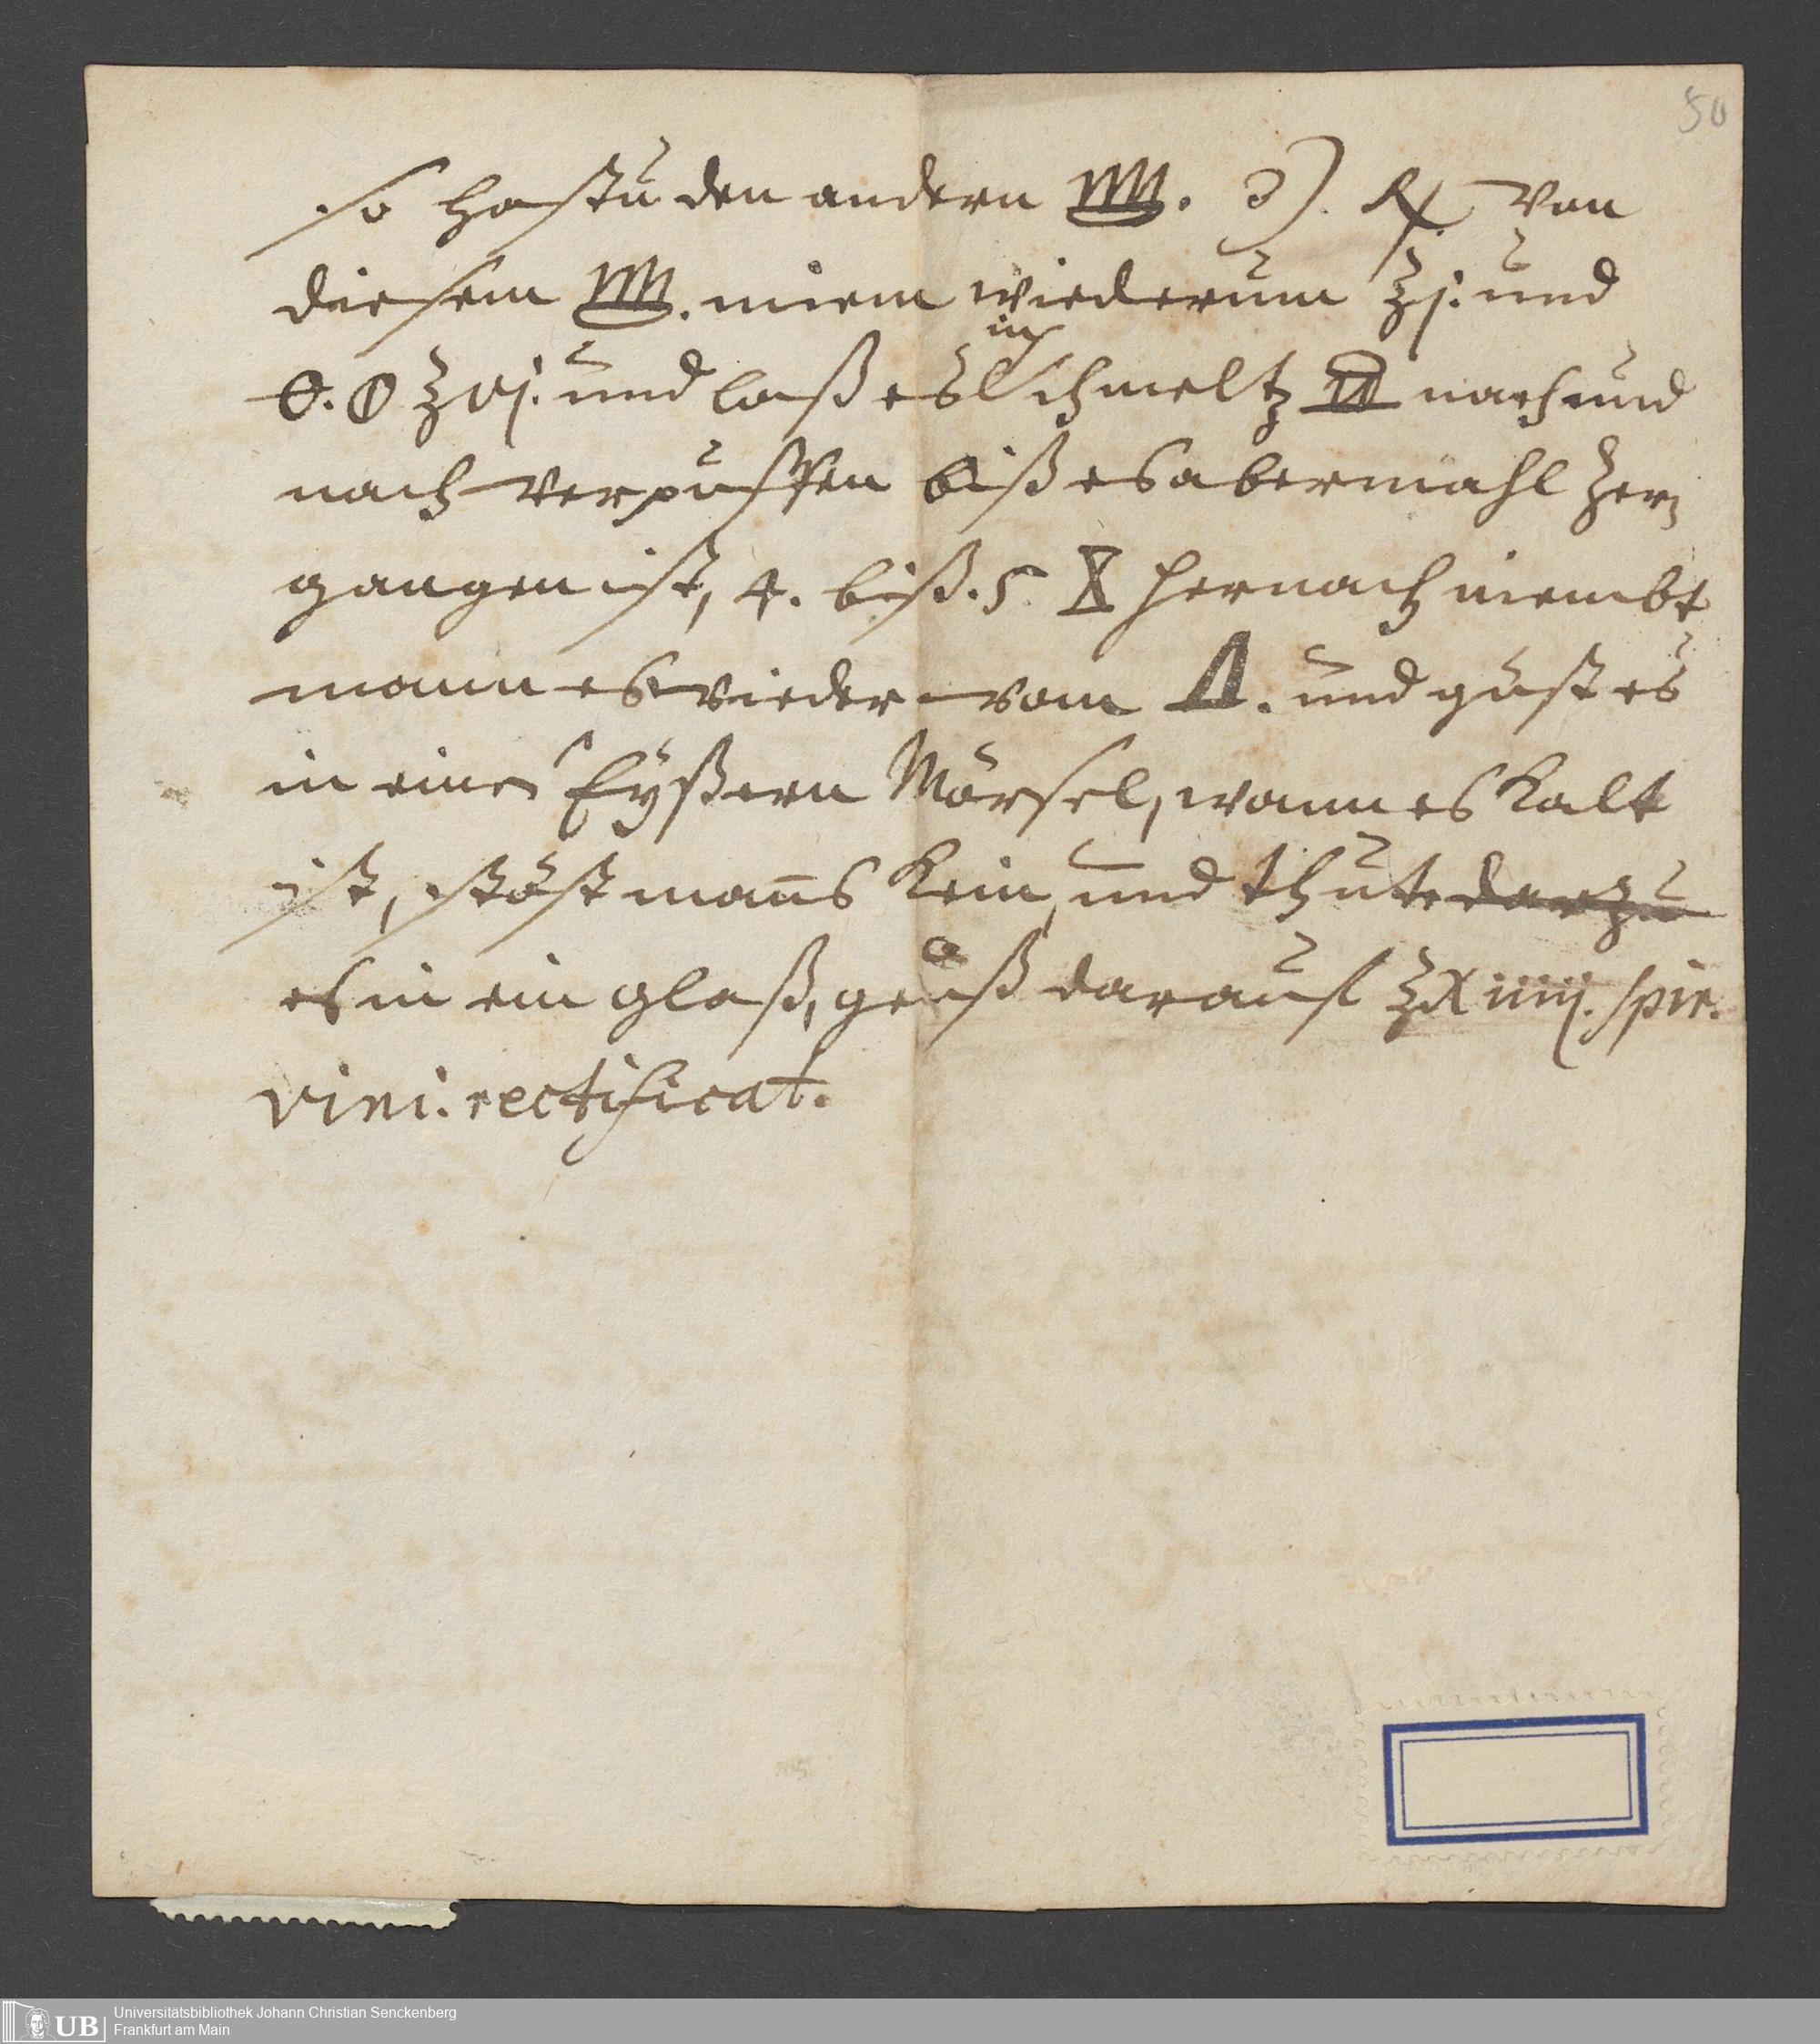 50
so hastu den andern 3). ℞ von
diesem niem wiederum ℥j. und
℥vj. und laß es
in
schmeltz nach und
nach verpuffen biß es abermahl zer⸗
gangen ist, 4. biß. 5. hernach niembt
mann es wieder vom 🜂. und gust es
in einen Eyßern Mörsel, wann es kalt
ist, stöst mans klein, und thut darzu
es in ein glaß, geuß darauf ℥Xiiij. spir.
vini. rectificat.
UB
Universitätsbibliothek Johann Christian Senckenberg
Frankfurt am Main